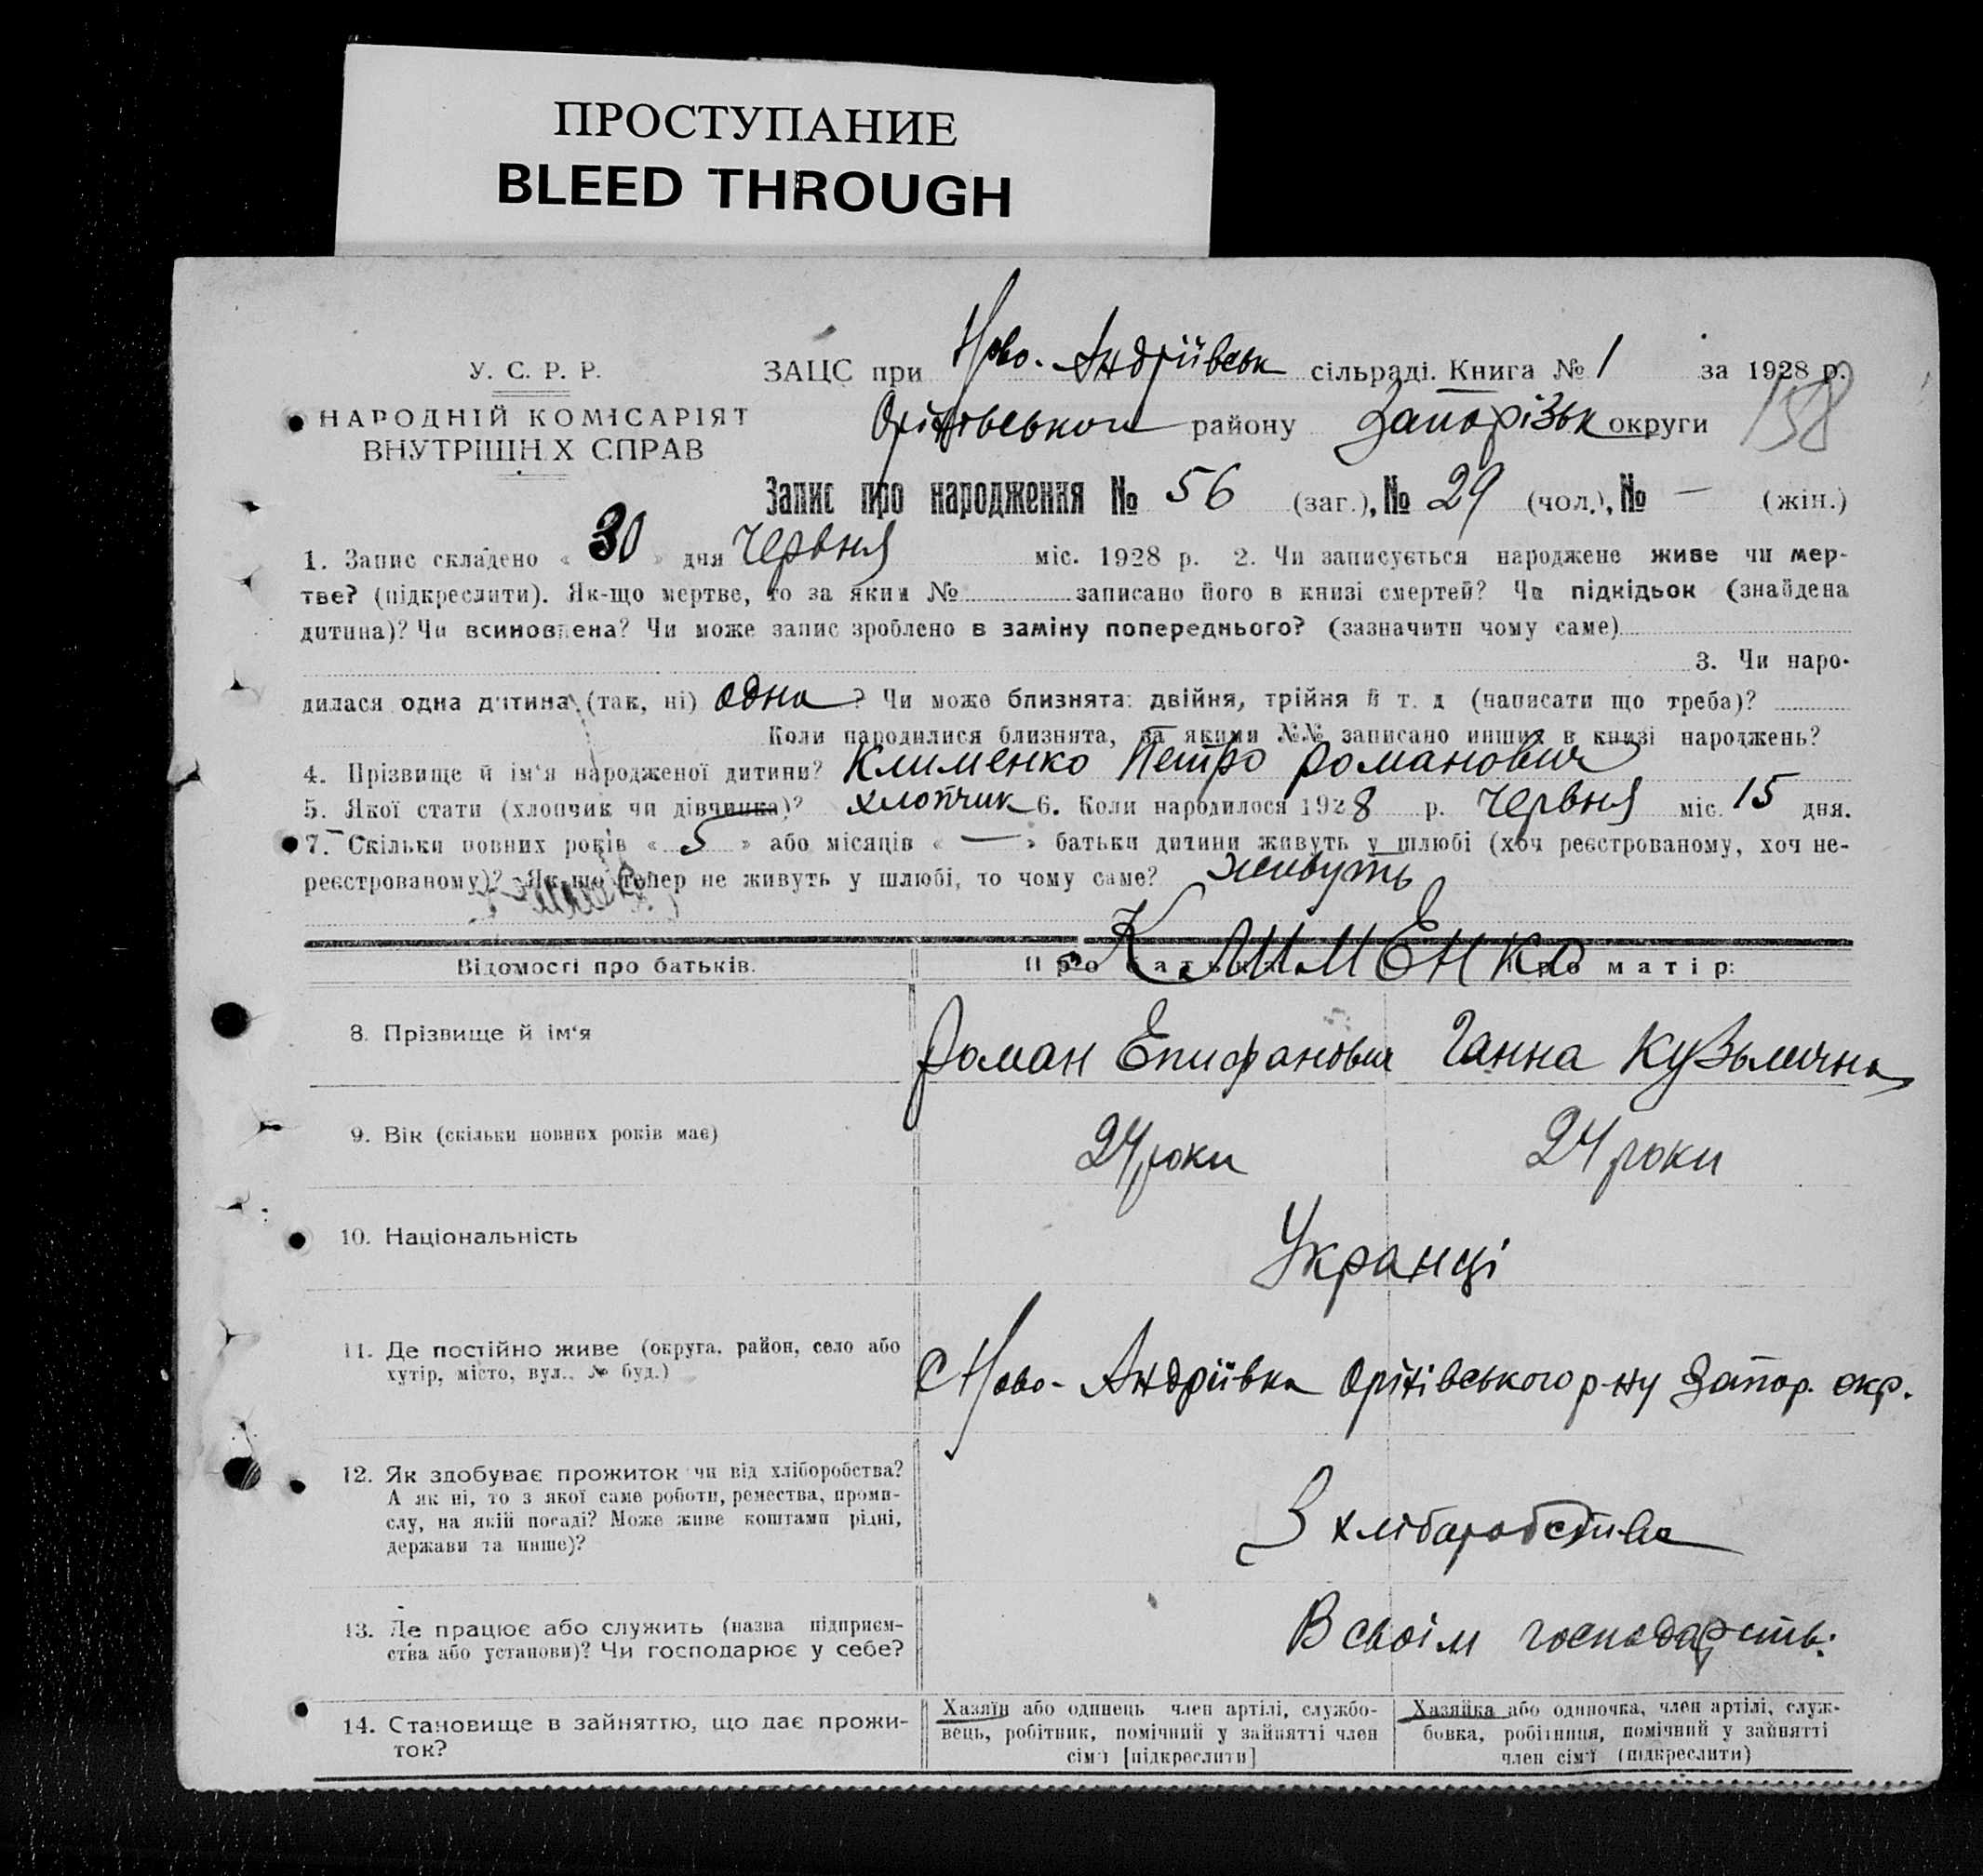 ПРОСТУПАНИЕ
BLEED THROUGH
У. С. Р. Р.
НАРОДНІЙ КОМІСАРІЯТ
ВНУТРІШН Х СПРАВ
ЗАЦС при Ново-Андріївськ сільраді. Книга № 1 за 1928 р.
Оріхівськом району Запорізьк округи
158
Запис про народження № 56 (заг.), № 29 (чол.), № — (жін.)
1. Запис складено « 30 » дня Червня міс. 1928 р. 2. Чи записується народжене живе чи мер-
тве? (підкреслити). Як-що мертве, то за яким № записано його в книзі смертей? Чи підкідьок (знайдена
дитина)? Чи всиновлена? Чи може запис зроблено в заміну попереднього? (зазначити чому саме)
3. Чи наро-
дилася одна дитина (так, ні) одна? Чи може близнята: двійня, трійня й т. д (написати що треба)?
Коли народилися близнята, за якими №№ записано инших в книзі народжень?
4. Прізвище й ім'я народженої дитини? Клименко Петро Романович
5. Якої стати (хлопчик чи дівчинка)? хлопчик 6. Коли народилося 1928 р. Червня міс. 15 дня.
7. Скільки повних років « 5 » або місяців « — » батьки дитини живуть у шлюбі (хоч реєстрованому, хоч не-
реєстрованому)? Як-що тепер не живуть у шлюбі, то чому саме? живуть
КЛИМЕНКО
Відомості про батьків. Про батька: Про матір:
8. Прізвище й ім'я Роман Епифанович Ганна Кузьмична
9. Вік (скільки повних років має) 24 роки 24 роки
10. Національність Укранці
11. Де постійно живе (округа, район, село або
хутір, місто, вул., № буд.)
С Ново-Андріївка Оріхівського р-ну Запор. окр.
12. Як здобуває прожиток чи від хліборобства?
А як ні, то з якої саме роботи, ремества, проми-
слу, на якій посаді? Може живе коштами рідні,
держави та инше)?
З хліборобства
13. Де працює або служить (назва підприєм-
ства або установи)? Чи господарює у себе?
В своім господарств.
14. Становище в зайняттю, що дає прожи-
ток?
Хазяїн або одинець член артілі, службо-
вець, робітник, помічний у зайнятті член
сім'ї [підкреслити]
Хазяйка або одиночка, член артілі, служ-
бовка, робітниця, помічний у зайнятті
член сім'ї (підкреслити)